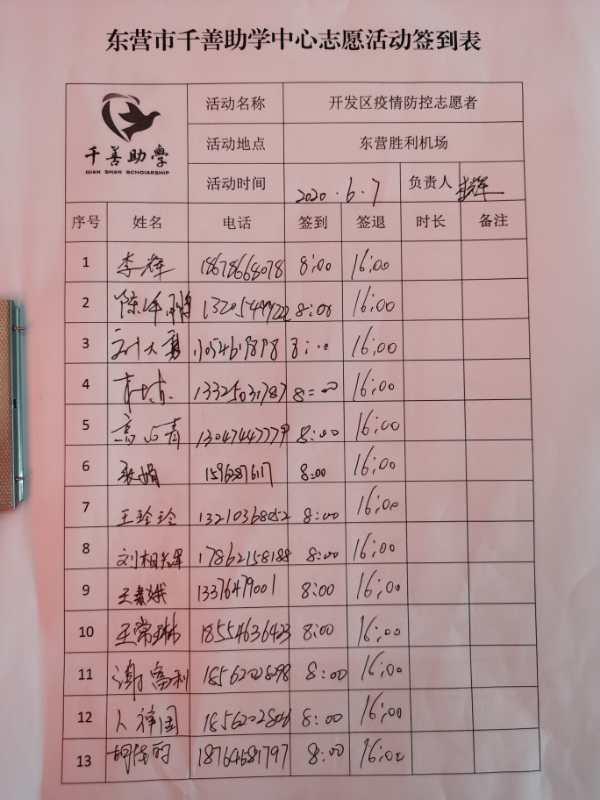 东营市千善助学中心志愿活动签到表
千善助學
QIAN SHAN SCHOLARSHIP
活动名称 开发区疫情防控志愿者
活动地点 东营胜利机场
活动时间 2020.6.7 负责人 李辉
序号 姓名 电话 签到 签退 时长 备注
1 李辉 18678668078 8:00 16:00
2 8:00 16:00
3 8:00 16:00
4 13325031787 8:00 16:00
5 13047447779 8:00 16:00
6 8:00 16:00
7 王玲玲 13210368052 8:00 16:00
8 17862158188 8:00 16:00
9 13376479001 8:00 16:00
10 18554636423 8:00 16:00
11 谢富利 18562022898 8:00 16:00
12 8:00 16:00
13 18764681797 8:00 16:00